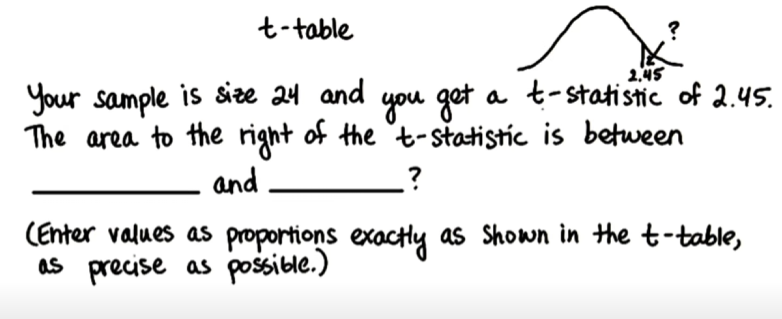 t-table
?
2.45
Your sample is size 24 and you get a t-statistic of 2.45.
The area to the right of the t-statistic is between
__________ and __________?
(Enter values as proportions exactly as shown in the t-table,
as precise as possible.)